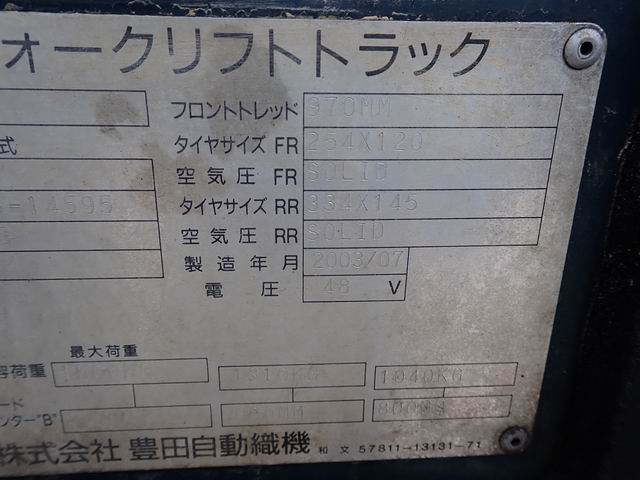 ォークリフトトラック
フロントトレッド 970MM
式
タイヤサイズ FR 254X120
空気圧 FR SOLID
-14595 タイヤサイズ RR 334X145
空気圧 RR SOLID
製造年月 2003/07
電圧 48 V
最大荷重
容荷重 1040KG
ード
ンター"B" 800MM
株式会社 豊田自動織機 和文 57811-13131-71